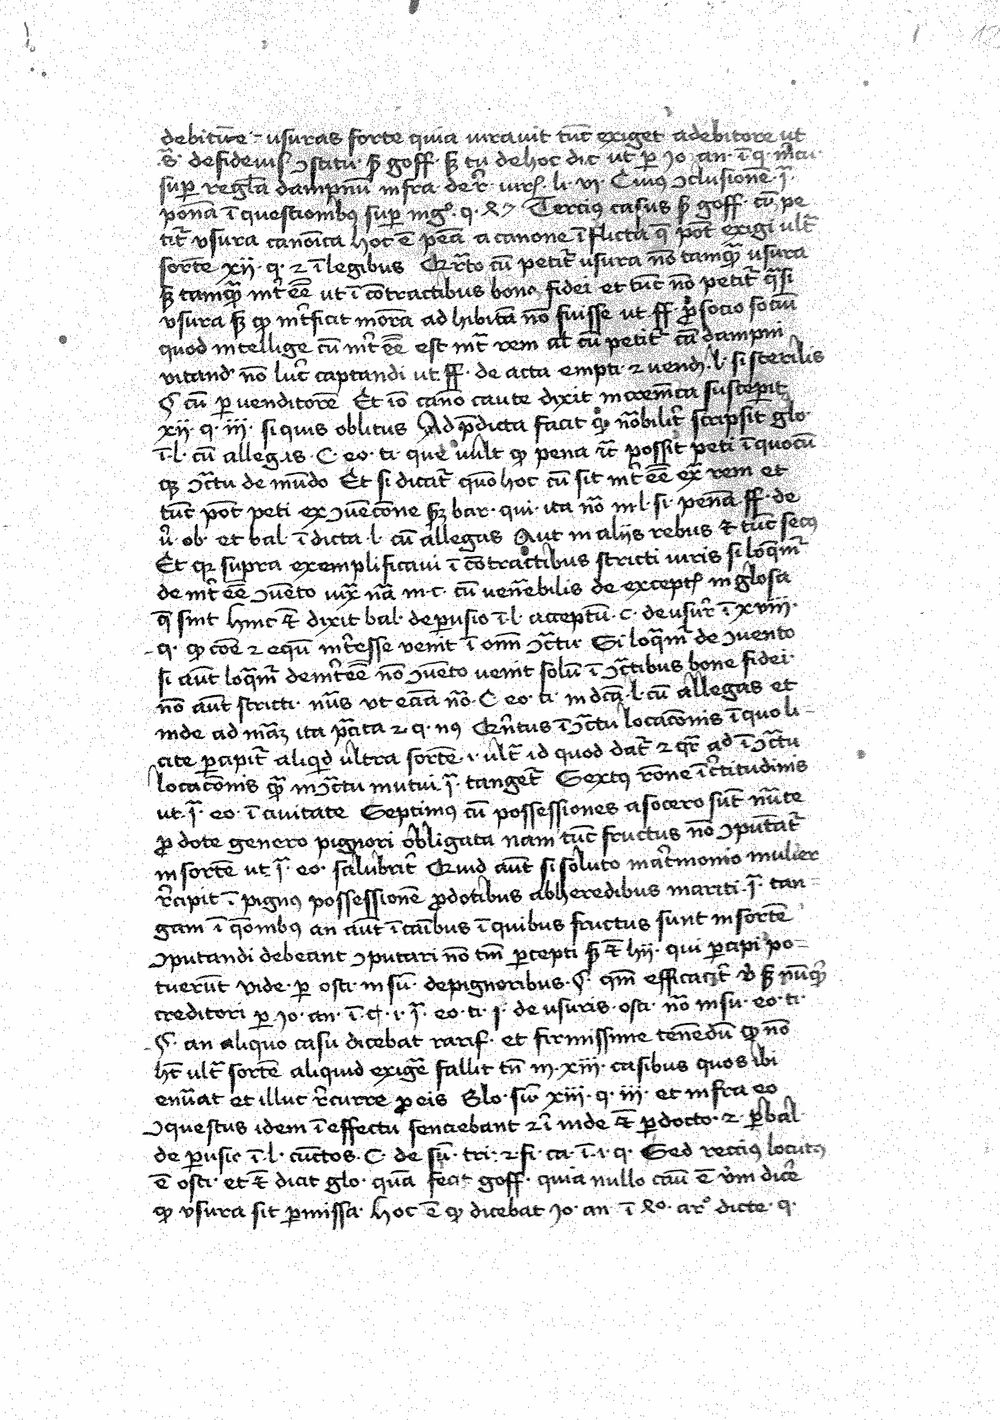 debitūre · usuras forte quia iuravit tūc exiget adebitore ut
s̄· defideius̄ ꝯstitū· s̄ goff· s̄ tu dehoc dic̄ ut ꝑ Jo· an· ī q· m̄cu·
suꝑ regl̄a dampnū infra· de r̄· iur̄· li· vi· Cuius ꝯclusione· ī·
ponā ī questionibꝰ suꝑ · q· Tercius casus s̄ goff· cū pe
tit̄ usura canonica hoc ē pēa a canone īflicta q̄ pot̄ exigi ult̄
sortē xij· q· ⁊ ī legibus Qr̄to cū petit̄ usura nō tamq̄ usura
s̄ tamq̄ int̄ēe ut ī cōtractibus bone fidei et tūc nō petit̄ q̄si
usura s̄ ꝙ int̄ficit morā adhibitā nō fuisse ut ff· ꝓ socio sociū
quod intellige cū int̄ēe est int̄ rem at̄ cū petit̄ cā dampni
vitand̄ nō lucͥ captandi ut ff· de acta empti ⁊ vend̄· l· si sterilis
§ cū ꝑ venditore Et iō cano caute dixit incremēta susceperit
xij· q· iij· siquis oblitus Ad p̄dicta facit ꝙ nōbilit̄ scripsit glo·
ī l· cū allegas · C· eo· ti· que vult ꝙ pena īt̄ possit peti ī quocū
qꝫ ꝯc̄tu de mūdo Et si dicat̄ quo hoc cū sit int̄ēe ex̄ rem et
tūc pōt peti ex ꝯuēcōne s̄ bar· qui· ita nō in l· si· penā ff· de
ū· ob· et bal· ī dicta· l· cū allegas Aut in aliis rebus et tūc secꝰ
Et qꝫ supra exemplificavi ī cōtractibus stricti iuris si loqm̄r
de int̄ēe ꝯuēto iux̄ nā in· c· cū venēbilis de except̄ in glosa
q̄ sint hinc ē dixit bal· de ꝑusio ī l· acceptū· C· de usur̄ ī xviij·
q· ꝙ cōe ⁊ equū int̄esse venit ī omni ꝯc̄tu Si loqm̄r de ꝯuento
si aut̄ loqm̄r de int̄ēe nō ꝯuento venit solū ī ꝯc̄tibus bone fidei·
nō aut̄ stricti· iuris ut eciā nō· C· eo· ti· in dc̄a l· cū allegas et
inde ad mā ita p̄cita ⁊ q· nꝰ Qūtus ī ꝯc̄tu locacōnis ī quo li-
cite ꝑcipit̄ aliqd̄ ultra sortē· i· ult̄ id quod dat̄ ⁊ qr̄ ad ī ꝯc̄tu
locacōnis q̄ in ꝯc̄tu mutui ī· tanget̄ Sextꝰ rōne īc̄titudinis
ut· ī· eo· ī civitate Septimꝰ cū possessiones a socero sūt nūte
ꝓ dote genero pignori obligata nam tūc fructus nō ꝯputāt̄
in sortē ut ī· eo· salubrit̄ Quid aut̄ si soluto mat̄rmonio mulier
r̄cipit ī pignꝰ possessionē ꝓ dotibus ab heredibus mariti· ī· tan-
gam ī q̄onibꝰ an aut̄ ī caibus ī quibus fructus sunt in sortē
ꝯputandi debeant ꝯputari nō tm̄ ꝑcepti s̄ et hij· qui ꝑcipi po-
tuerūt vide· ꝑ osti· in sū· de pignoribus· §· qm̄ efficacit̄ v̄ s̄ nūq̄
creditori ꝑ Jo· an· ī· c· i· ī· eo· ti· i· de usuris· osti· nō in su· eo· ti·
§· an aliquo casu dicebat rarif· et firmissime tenēdū ꝙ nō
ht̄ ult̄ sortē aliquid exigē fallit tn̄ in· xiij· casibus quos ibi
enūat et illuc r̄curre ꝓ eis Glo· sup̄ xiij· q· iij· et infra eo
ꝯquestus idem ī effectu senciebant ⁊ ī inde et̄ ꝑ docto· ⁊· ꝑ bal·
de ꝑusic ī· l· cūctos· C· de sū· tri: ⁊ fi· ca· ī· i· q· Sed rectiꝰ locutꝰ
ē osti· et et̄ dicat glo· quā fecit goff· quia nullo cāū ē v̄m dicē
ꝙ usura sit ꝑmissa· hoc ē ꝙ dicebat Jo· an· ī · arͦ· dicte· q·